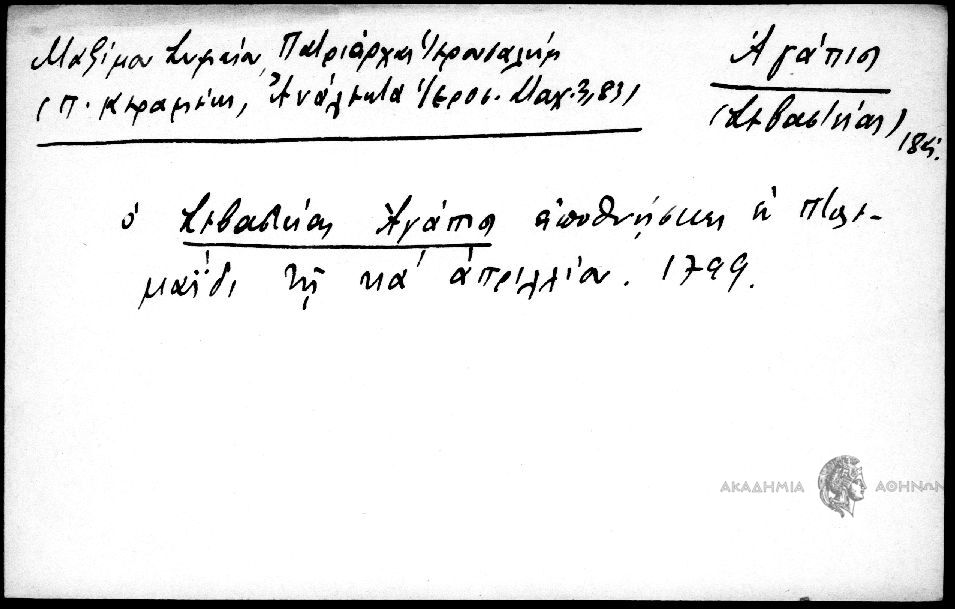 Μαξίμου Συμαίου, Πατριάρχου Ἱεροσολύμ
(Π. Κεραμέως, Ἀνάλεκτα Ἱεροσ. Σταχ. 3, 83)
Ἀγάπιος
(Σεβαστείας)
18ος.
ὁ Σεβαστείας Ἀγάπιος ἀποθνήσκει ἐν Πτολε-
μαΐδι τῇ κα΄ ἀπριλλίου. 1799.
ΑΚΑΔΗΜΙΑ ΑΘΗΝΩΝ